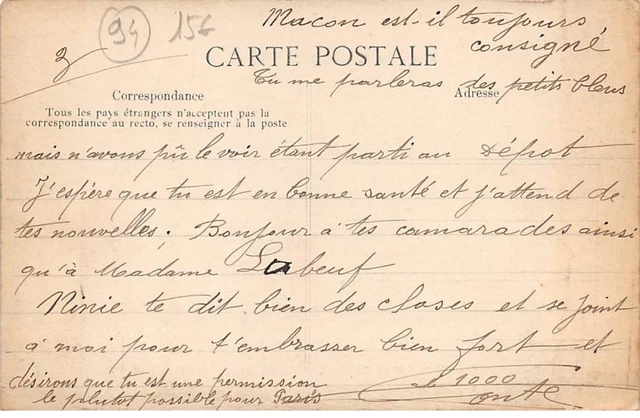 94 156
3
Macon est-il toujours
consigné
CARTE POSTALE
Tu me parleras des petits bleus
Correspondance
Adresse
Tous les pays étrangers n'acceptent pas la
correspondance au recto, se renseigner à la poste
mais n'avons pû le voir étant parti au Dépot
J'espère que tu est en bonne santé et j'attend de
tes nouvelles. Bonjour à tes camarades ainsi
qu'à Madame Lebeuf
Ninie te dit bien des closes et se joint
à moi pour t'embrasser bien fort et
désirons que tu est une permission
le plutot possible pour Paris
le 1000